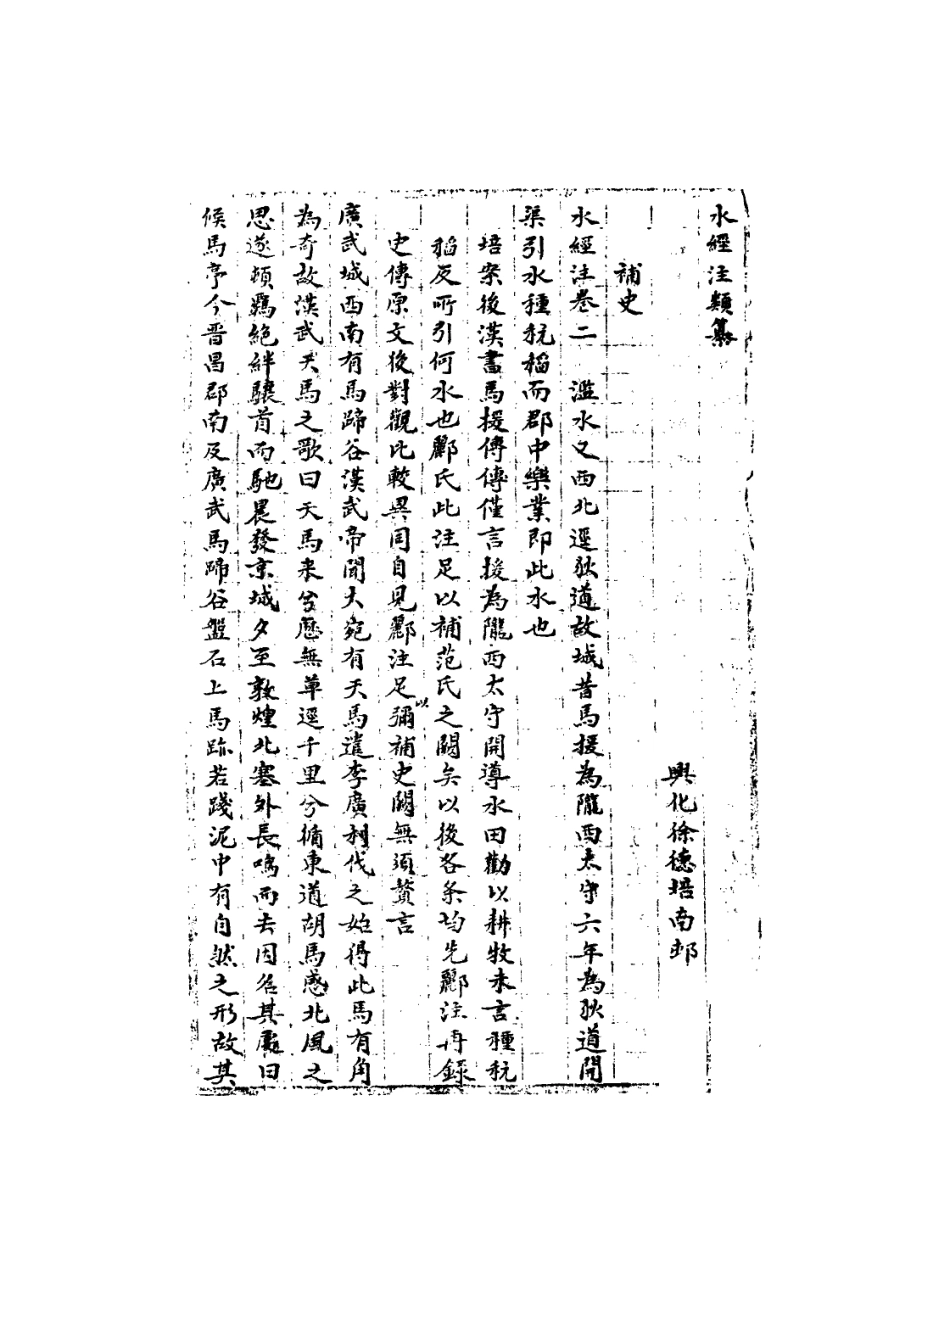 水經注類纂
興化徐德培南邨
補史
水經注卷二　濫水又西北逕狄道故城昔馬援為隴西太守六年為狄道開
渠引水種秔稻而郡中樂業即此水也
培案後漢書馬援傳傳僅言援為隴西太守開導水田勸以耕牧未言種秔
稻反所引何水也酈氏此注足以補范氏之闕矣以後各条均先酈注再錄
史傳原文後對觀比較異同自見酈注足以彌補史闕無須贅言
廣武城西南有馬蹄谷漢武帝聞大宛有天馬遣李廣利伐之始得此馬有角
為奇故漢武天馬之歌曰天馬来兮歷無草逕千里兮循東道胡馬感北風之
思遂頓羈絶絆驤首而馳晨發京城夕至敦煌北塞外長鳴而去因名其處曰
候馬亭今晋昌郡南及廣武馬蹄谷盤石上馬跡若踐泥中有自然之形故其